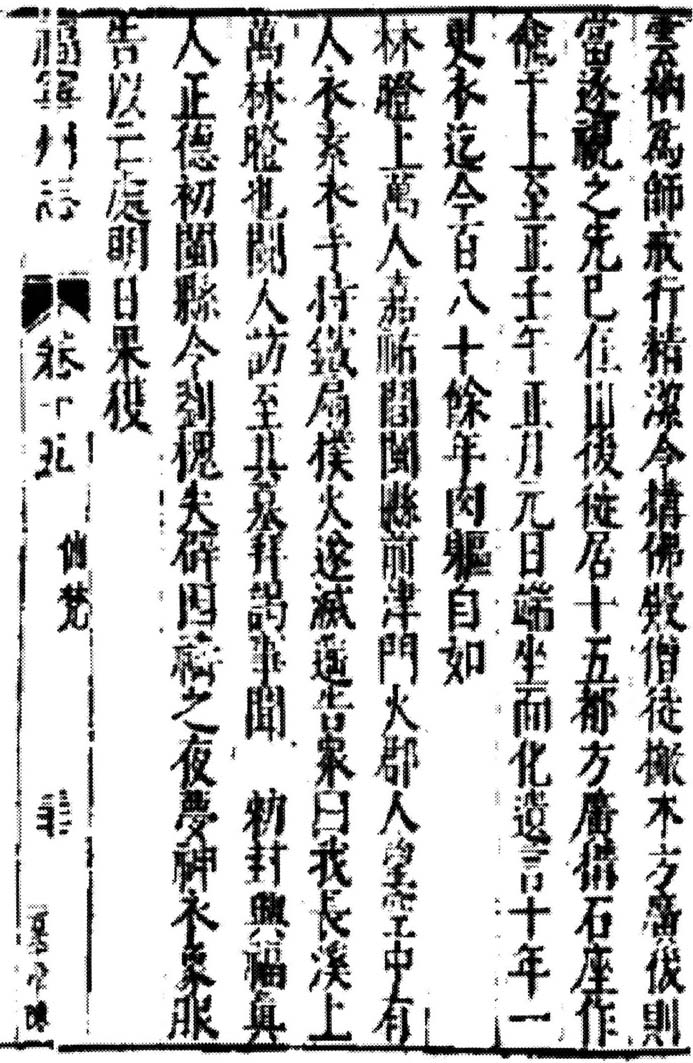 雲衲爲師戒行精潔今構佛殿僧徒搬木方廣後則
當逐視之先已在山後徒居十五都方廣構石座作
偈于上至正壬午正月元日端坐而化遺言十年一
更衣迄今百八十餘年肉軀自如
林瞪上萬人嘉祐間閩縣前津門火郡人望空中有
人衣素衣手持鐵扇撲火遂滅遥告衆曰我長溪上
萬林瞪也閩人訪至其墓拜謁事聞 勑封興福真
人正德初閩縣令劉槐失辟囚禱之夜夢神衣象服
告以亡處明日果獲
福寧州志 卷十五 僊梵